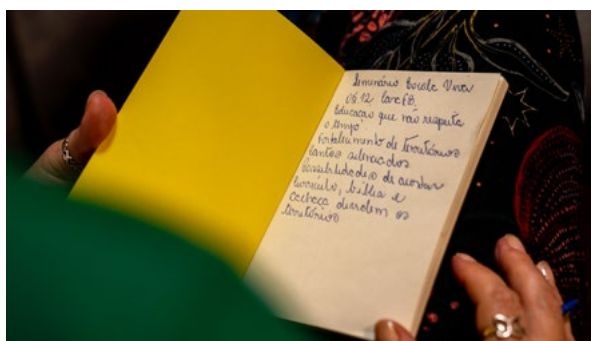 Seminário Escola Viva
06.12.
Educação que não respeita
o tempo
Fortalecimento de territórios
cantos
possibilidades de acordar
currículo, bíblia e
cachaça os
territórios